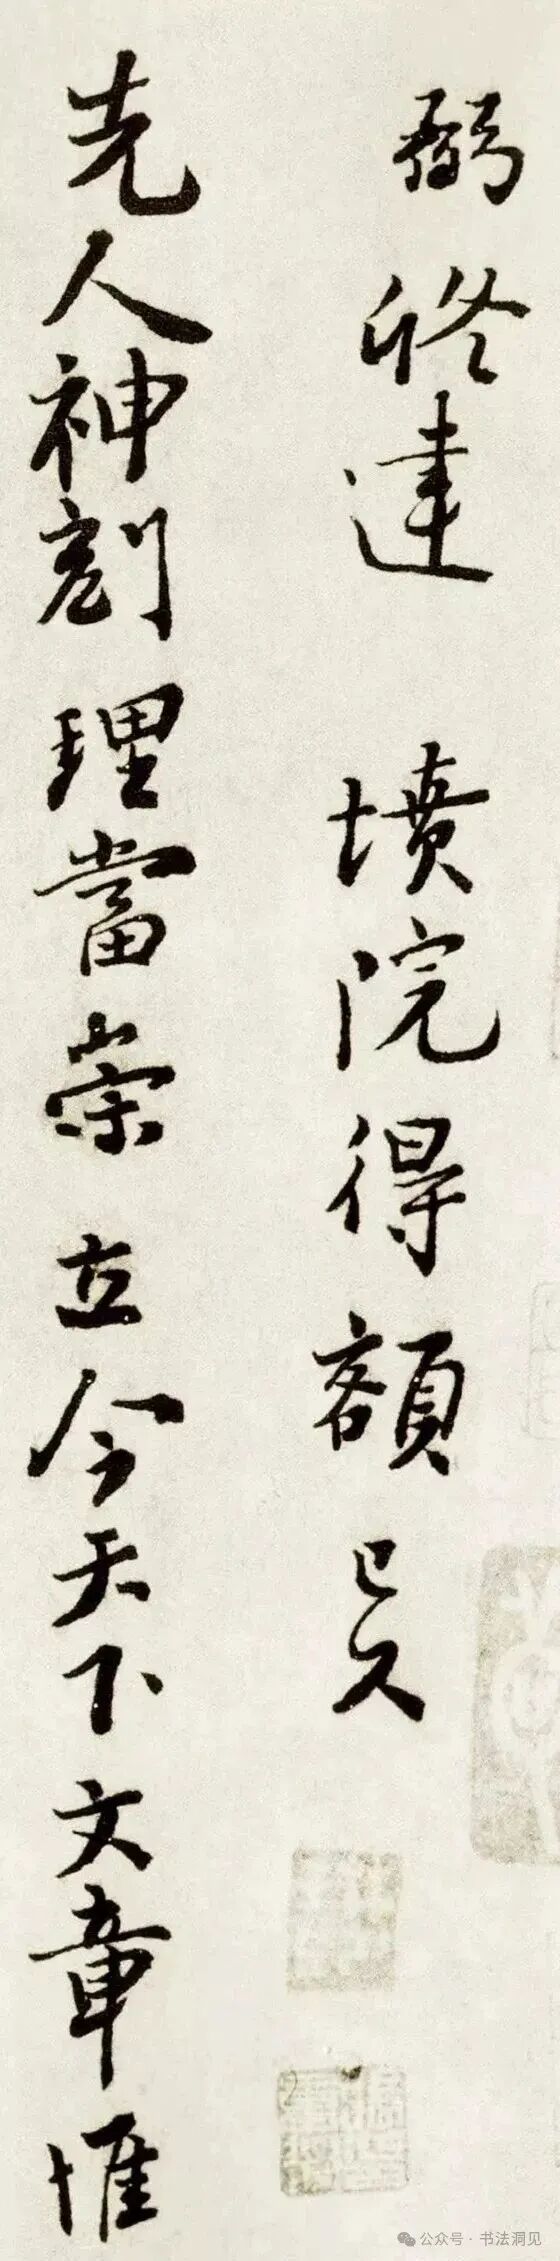 弼修建　墳院得額已久
先人神刻理當崇立今天下文章惟
公众号 · 书法洞见